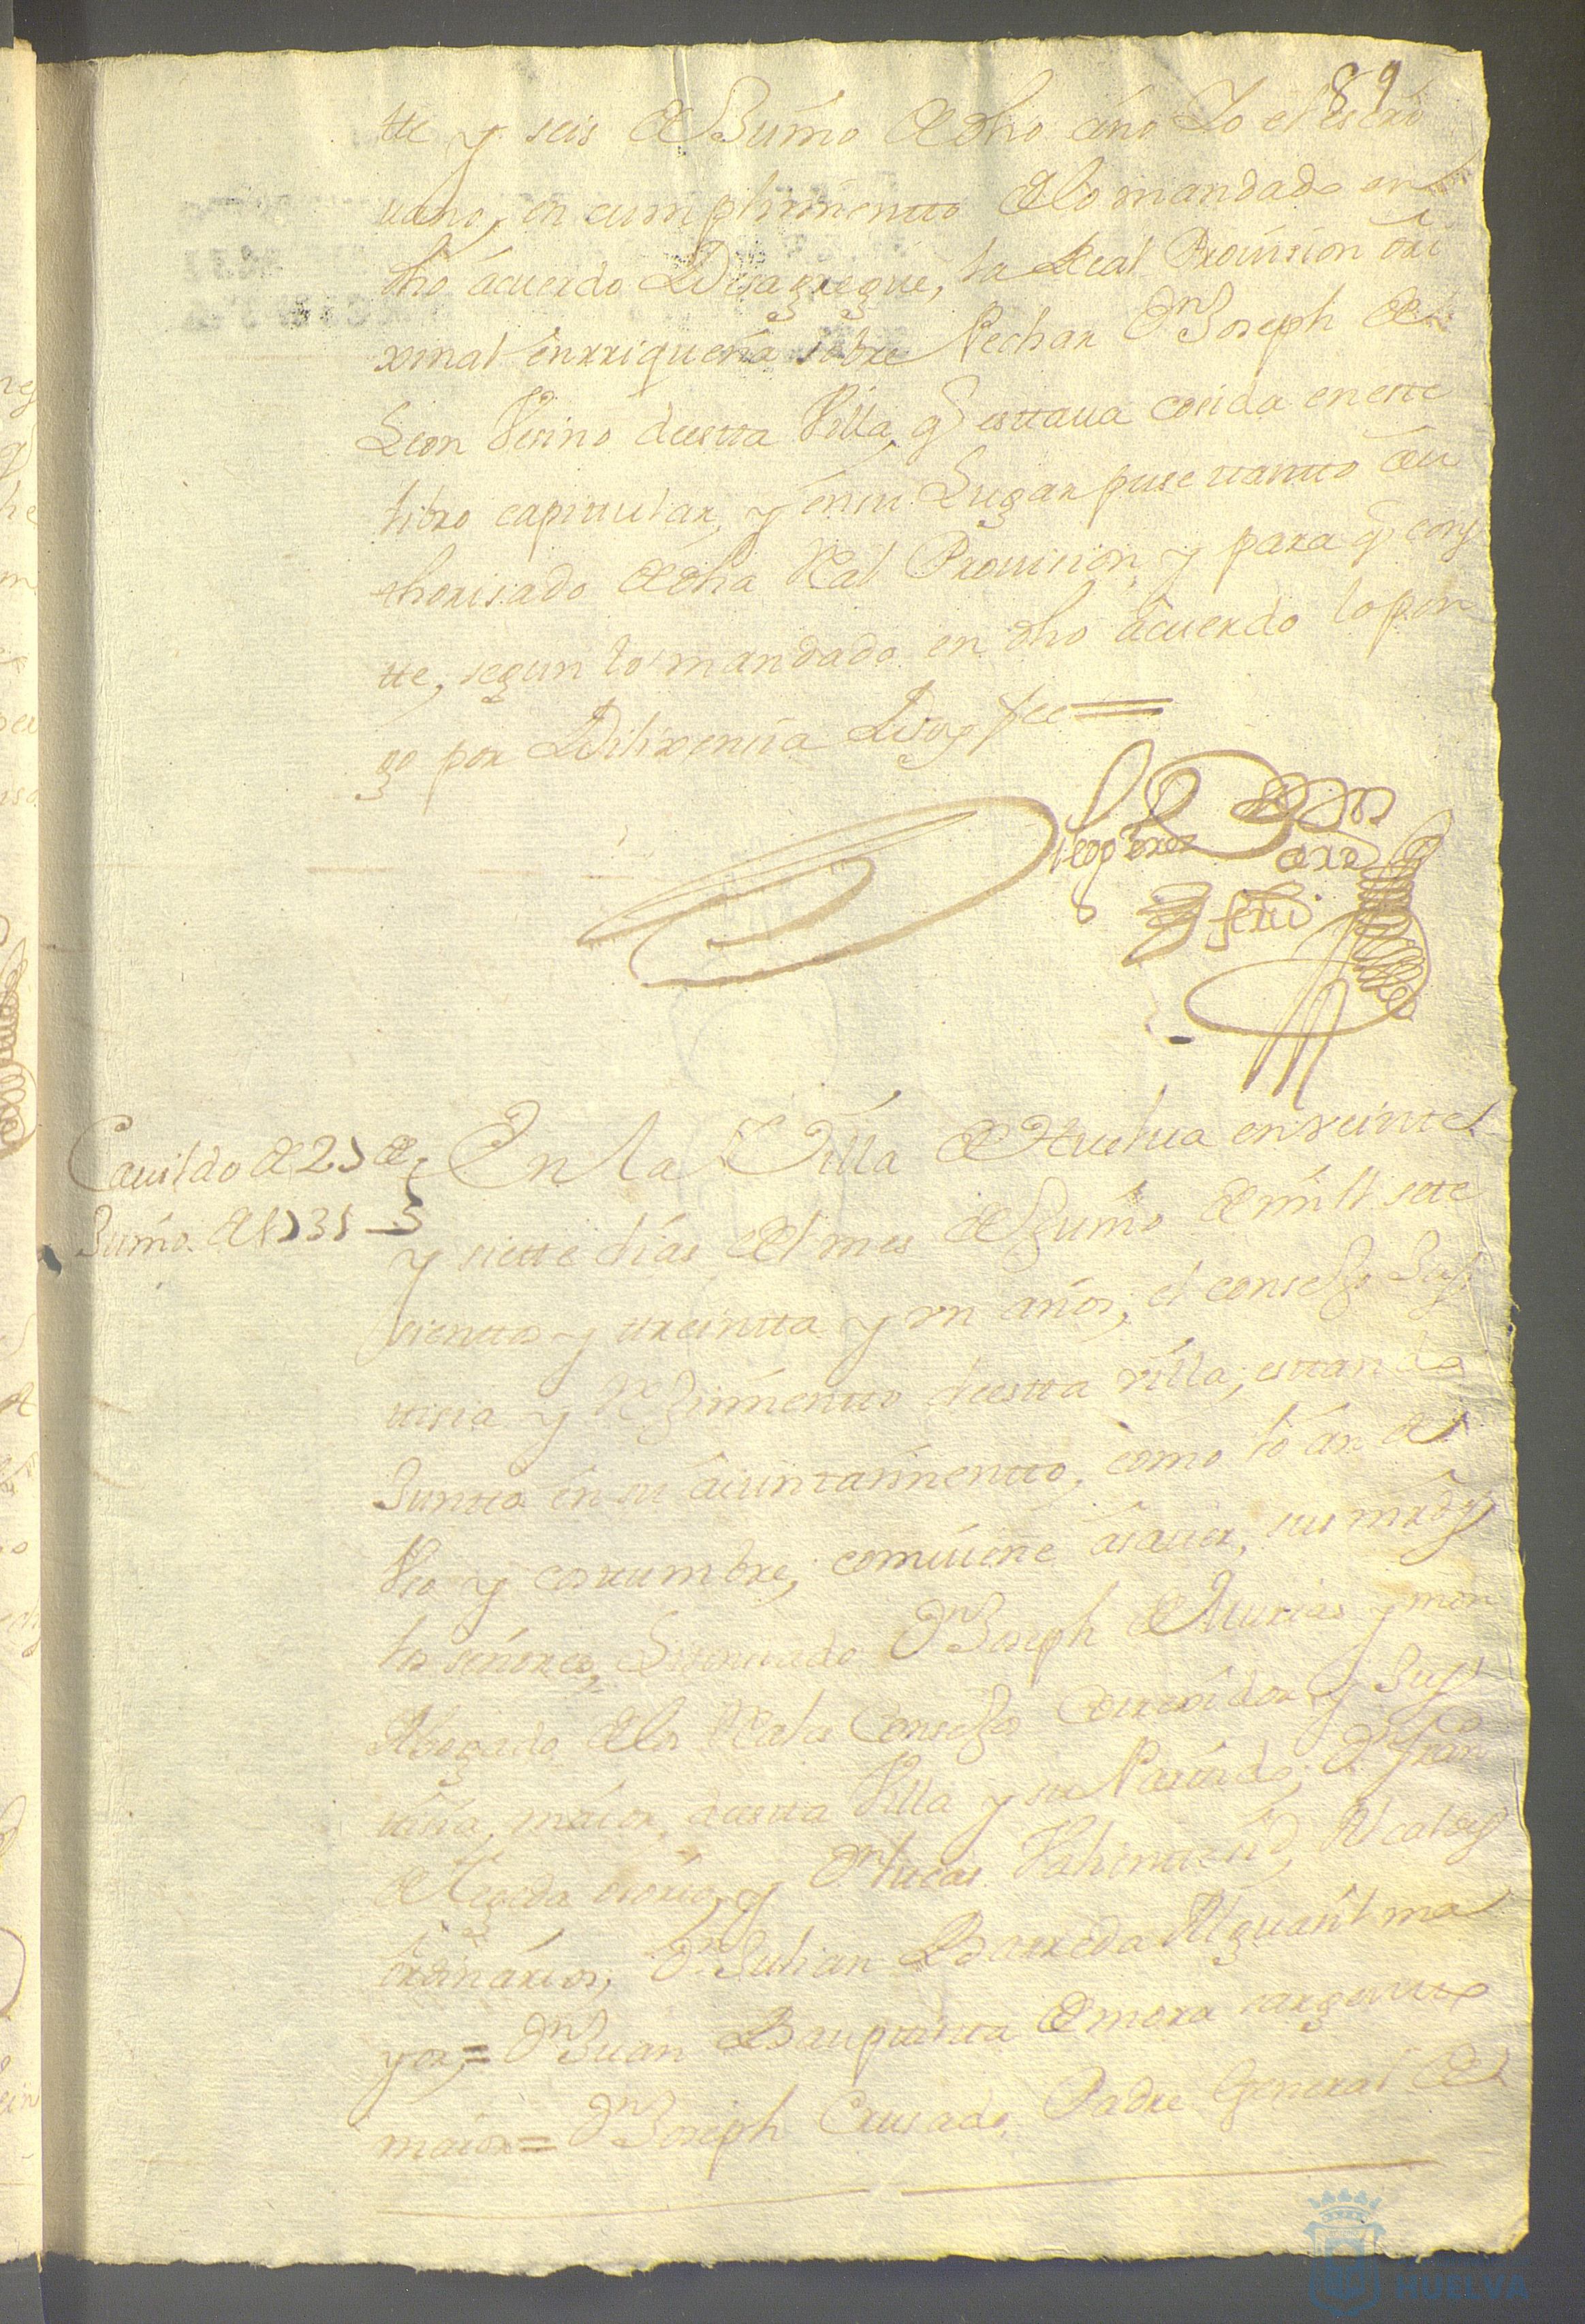 89
tte y seis de Junio de dho año Yo el escri
uano, en cumplimientto de lo mandado en
dho acuerdo Desagregue, la Real Prouision ori
xinal enrriqueña sobre Pechar Dn Joseph de
Leon Vesino de estta Villa, q esttaua cosida en este
libro capittular, y en su Lugar puse ttantto au
thorisado de dha Real Prouision, y para q cons
tte, segun lo mandado en dho acuerdo lo pon
go por Dilixencia Doy fee
Diego Perez
Cauildo de 27 de
Junio de 1731
En la Villa de Huelua en veintte
y siette dias del mes de Junio de mill sette
sienttos y treintta y un años, el consejo Jus
tisia y Rejimientto de estta villa, esttando
Juntto en su aiunttamientto, como lo an de
Vso y costtumbre, combiene asauer, sus mrds
los señores, Lisensiado Dn Joseph de Murias y mon
Abogado de los Reales Consejos Correxidor y Jus
tisia maior de estta Villa y su Parttido, Dn Fran co
de Tegeda osorio, y Dn Lucas Alcaldes
ordinarios, Dn Julian Barreda Alguasil ma
yor, = Dn Juan Bauptistta de mora sargentto
maior = Dn Joseph Crusado Padre General de
HUELVA